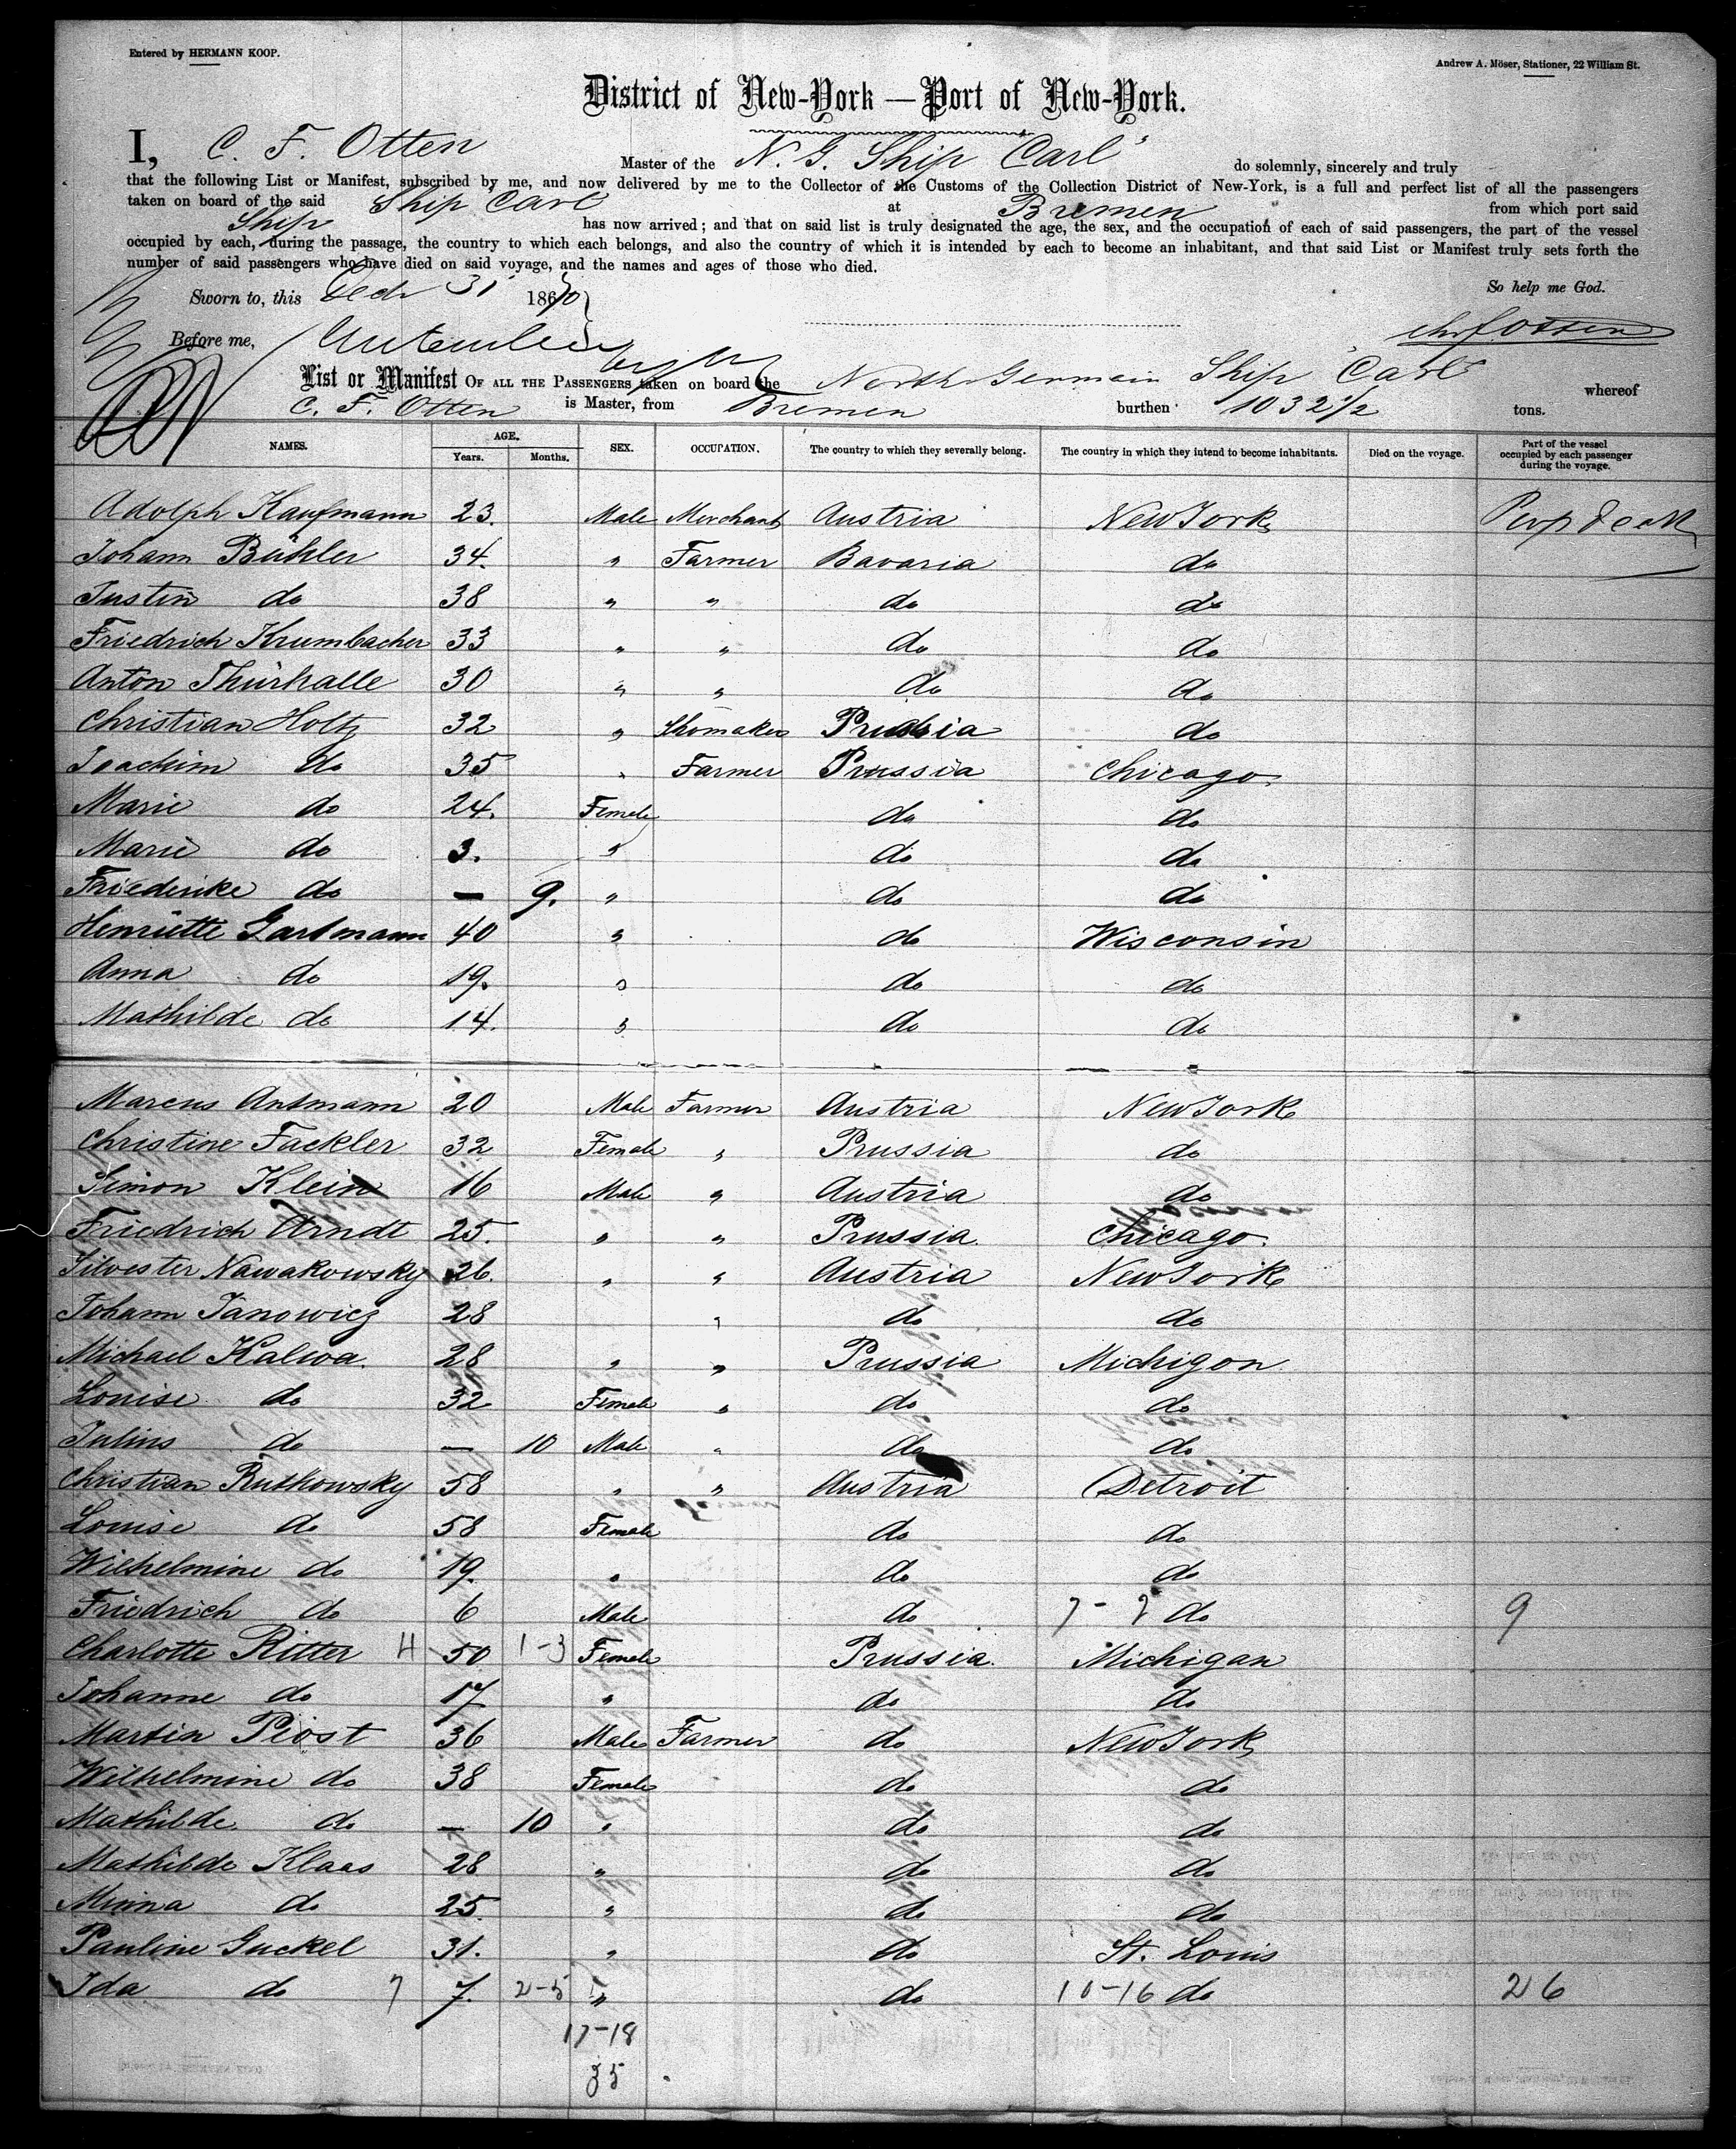 Entered by HERMANN KOOP.
Andrew A. Möser, Stationer, 22 William St.
District of New-York — Port of New-York.
I, C. F. Otten Master of the N. G. Ship "Carl" do solemnly, sincerely and truly
that the following List or Manifest, subscribed by me, and now delivered by me to the Collector of the Customs of the Collection District of New-York, is a full and perfect list of all the passengers
taken on board of the said Ship Carl at Bremen from which port said
Ship has now arrived; and that on said list is truly designated the age, the sex, and the occupation of each of said passengers, the part of the vessel
occupied by each, during the passage, the country to which each belongs, and also the country of which it is intended by each to become an inhabitant, and that said List or Manifest truly sets forth the
number of said passengers who have died on said voyage, and the names and ages of those who died.
Sworn to, this Decbr 31 1870 So help me God.
Before me, Chr f Otten
List or Manifest OF ALL THE PASSENGERS taken on board the North German Ship "Carl" whereof
C. F. Otten is Master, from Bremen burthen 1032 1/2 tons.
NAMES. AGE. Years. Months. SEX. OCCUPATION. The country to which they severally belong. The country in which they intend to become inhabitants. Died on the voyage. Part of the vessel occupied by each passenger during the voyage.
Adolph Kaufmann 23. Male Merchant Austria New York
Johann Bühler 34. " Farmer Bavaria do
Justin do 38 " " do do
Friedrich Krumbacher 33 " " do do
Anton Thürhalle 30 " " do do
Christian Holtz 32 " Shomaker Prussia do
Joachim do 35 " Farmer Prussia Chicago
Marie do 24. Female do do
Marie do 3. " do do
Friederike do — 9. " do do
Henriette Gartmann 40 " do Wisconsin
Anna do 19. " do do
Mathilde do 14. " do do
Marcus Antmann 20 Male Farmer Austria New York
Christine Fackler 32 Female " Prussia do
Simon Klein 16 Male " Austria do
Friedrich Arndt 25. " " Prussia. Chicago.
Silvester Nawakowsky 26. " " Austria New York
Johann Janowicz 28 " do do
Michael Kalwa. 28 " " Prussia Michigon
Louise do 32 Female " do do
Julius do — 10 Male " do do
Christian Rutkowsky 58 " " Austria Detroit
Louise do 58 Female do do
Wilhelmine do 19. " do do
Friedrich do 6 Male do 7 - 2 do 9
Charlotte Ritter 4 50 1-3 Female Prussia. Michigan
Johanne do 17 " do do
Martin Piost 36 Male Farmer do New York
Wilhelmine do 38 Female do do
Mathilde. do — 10 " do do
Mathilde Klaas 28 " do do
Minna do 25. " do do
Pauline Guckel 31. " do St. Louis
Ida do 7 7. 2-5 " do 10-16 do 26
17-18
35